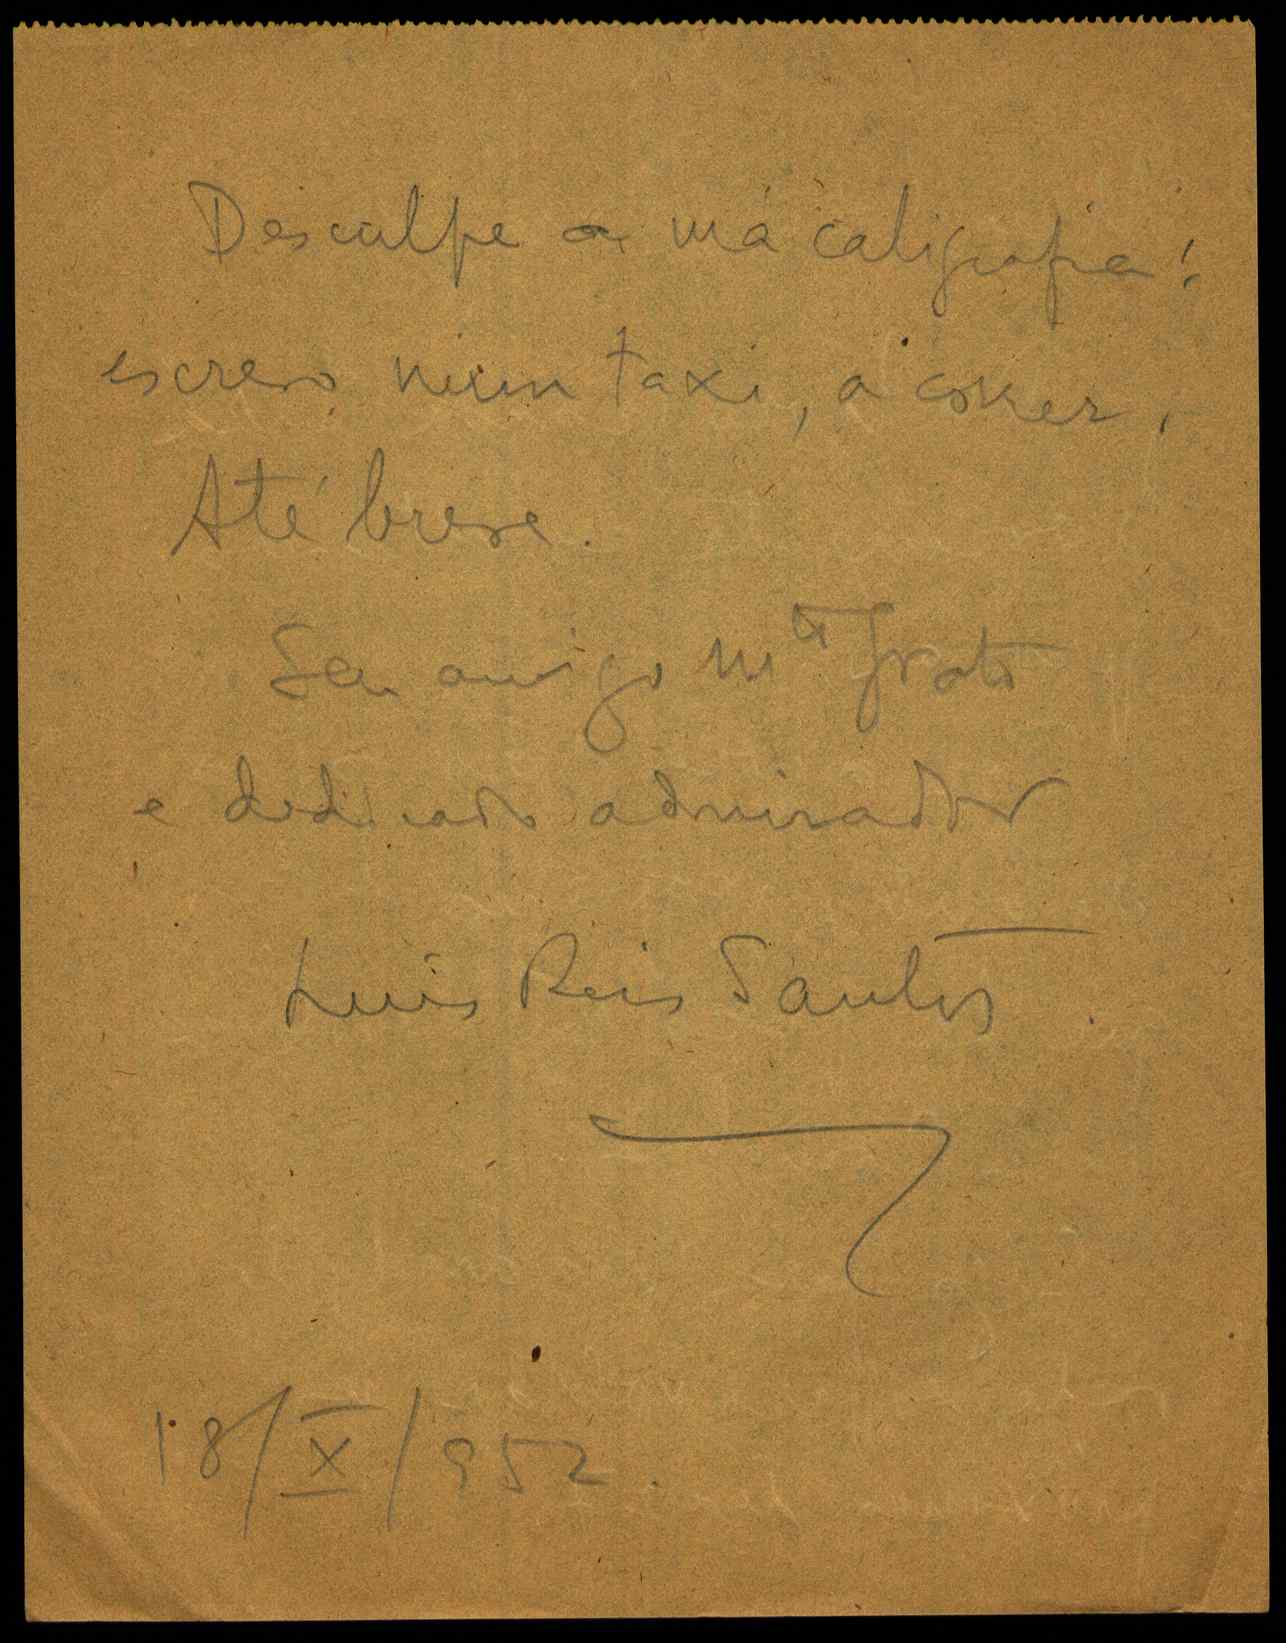 Desculpe a má caligrafia:
escrevo num taxi, a correr.
Até breve.
Seu amigo mto grato
e dedicado admirador
Luis Reis Santos.
18/X/952.